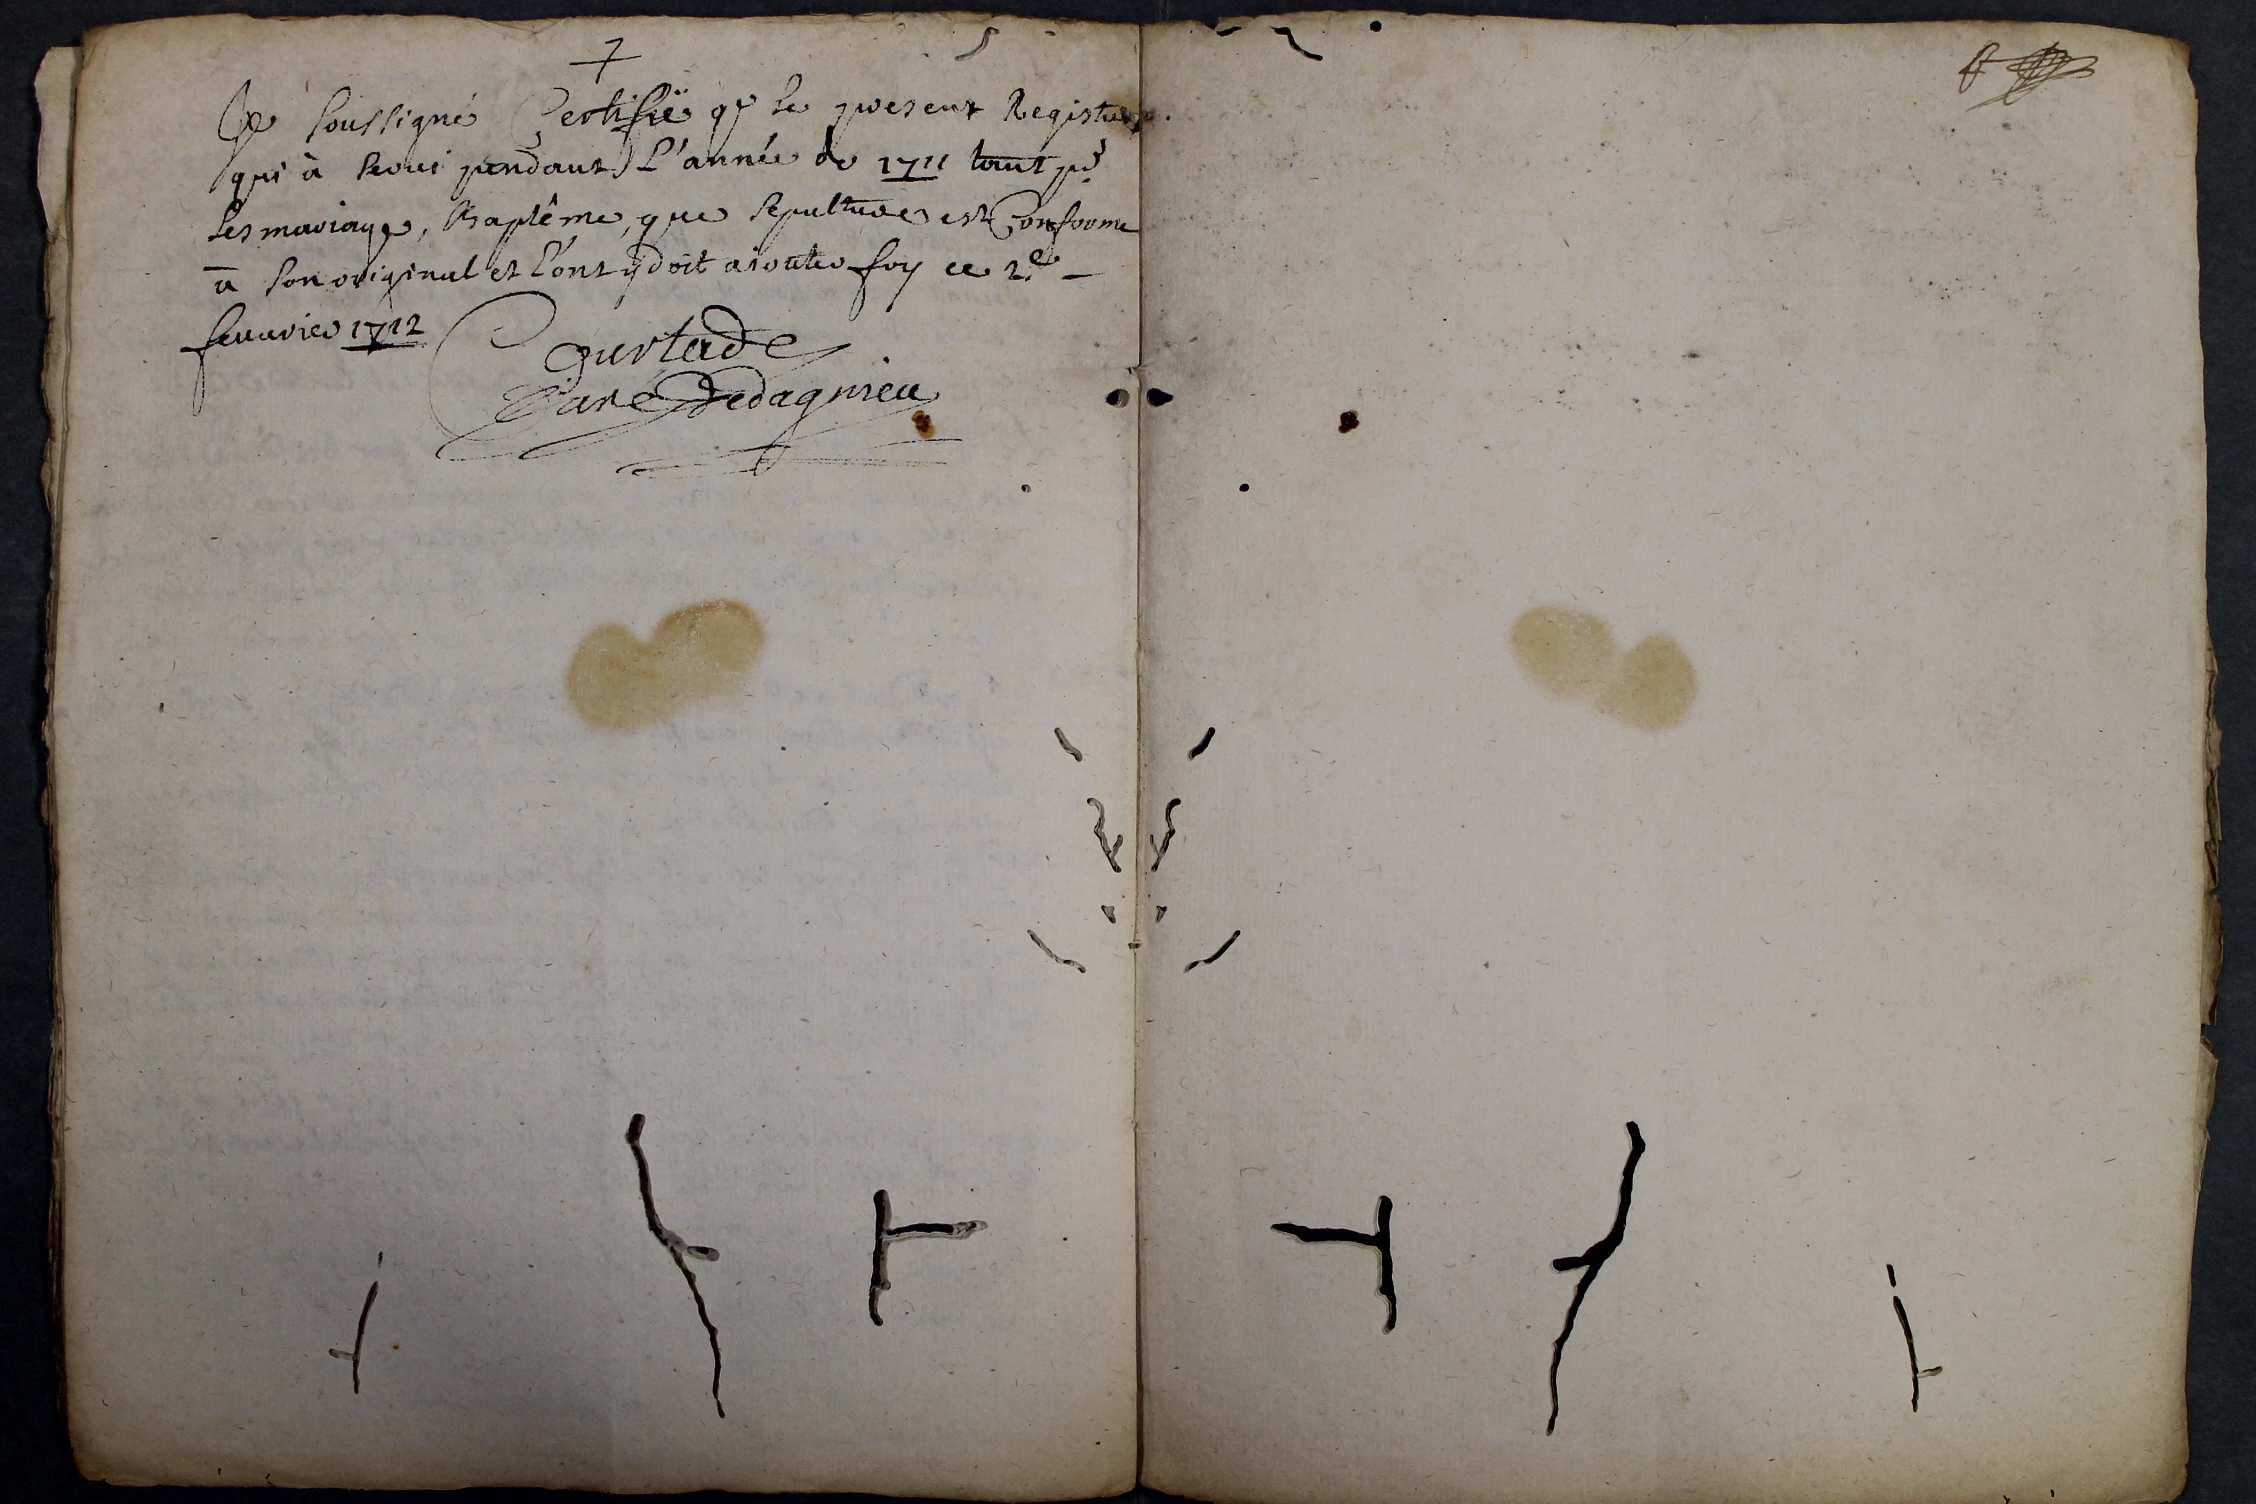 Je soussigné Certifie q̃ le present Registre
qui à servi pendant L'année de 1711 tant pr̃
les mariage, Baptême, que sepulture est Conforme
à son original et l'ont y doit aiouter foy ce 2e
feuvrier 1712
Courtade
Curé de dagnieu